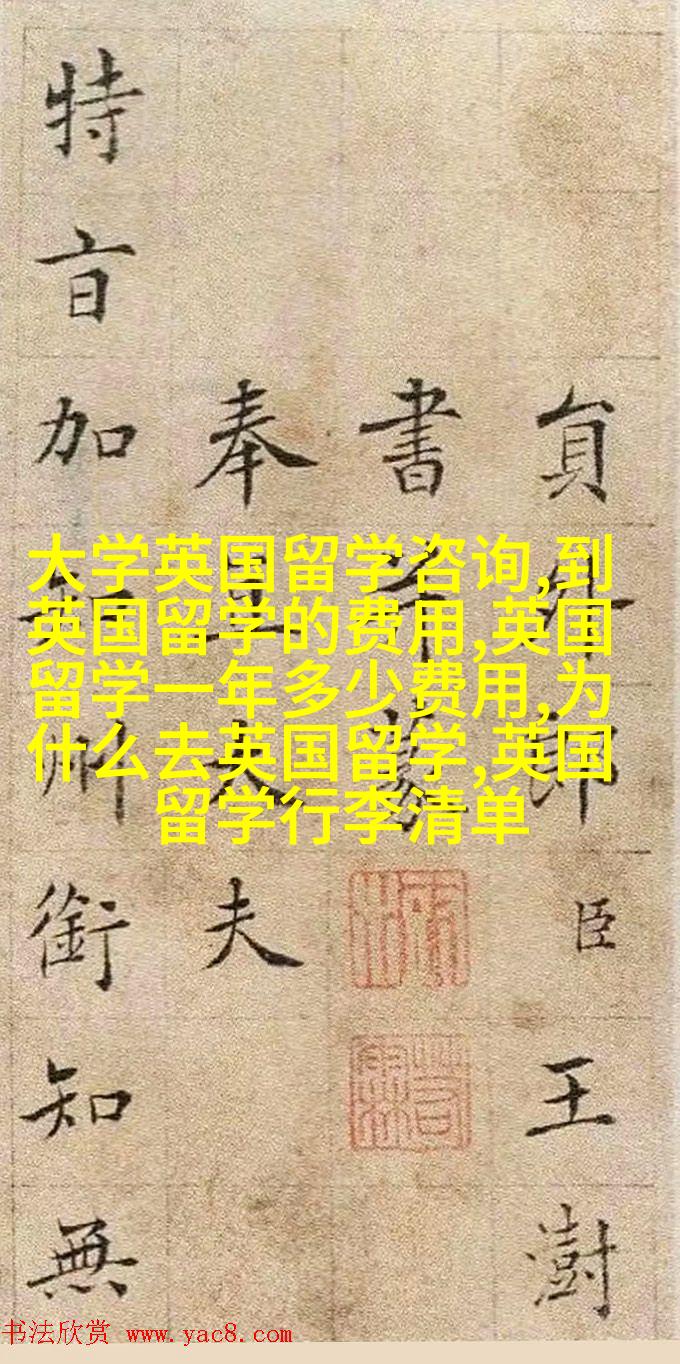 大学英国留学咨询,到
英国留学的费用,英国
留学一年多少费用,为
什么去英国留学,英国
留学行李清单
貟外郎臣王澍
書
奉直大夫
特㫖加知州銜知無
书法欣赏 www.yac8.com